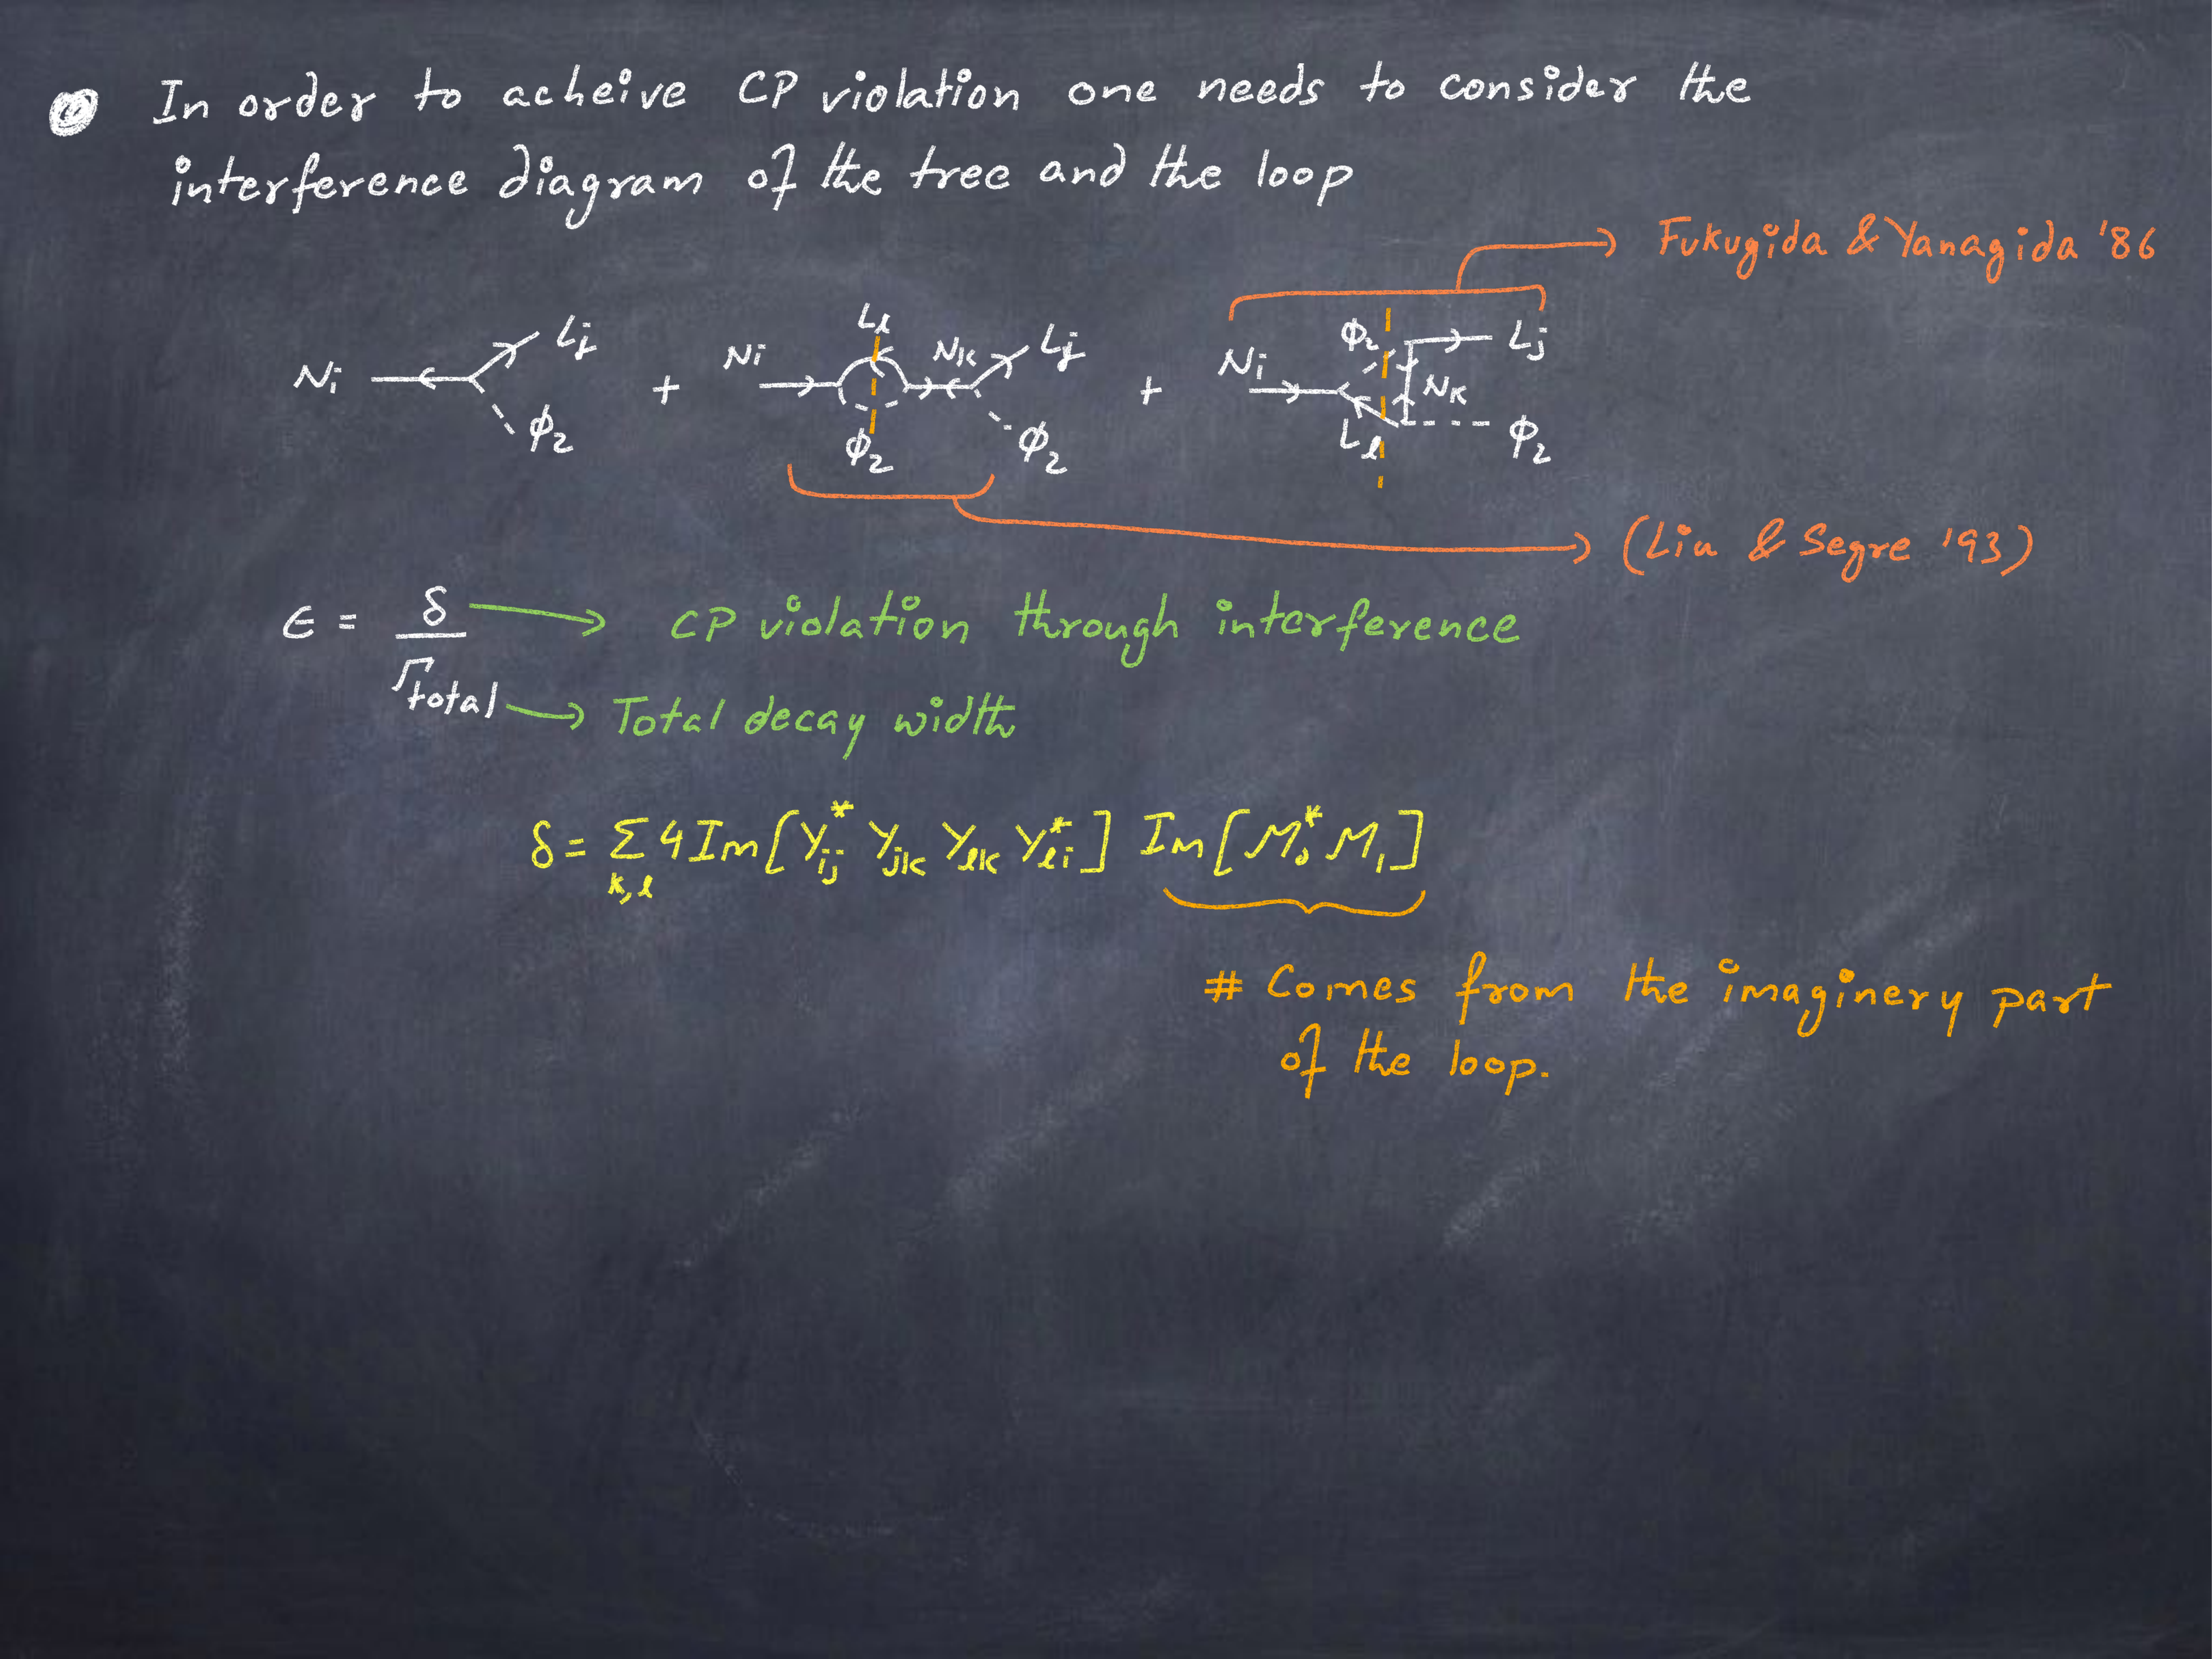 In order to acheive CP violation one needs to consider the
interference diagram of the tree and the loop
Fukugida & Yanagida '86
Ni Lj ϕ2 + Ni Lℓ ϕ2 Nk Lj ϕ2 + Ni ϕ2 Lℓ Nk Lj ϕ2
(Liu & Segre '93)
ϵ = δ / Γtotal
CP violation through interference
Total decay width
δ = Σ_{k,ℓ} 4 Im[Y*_{ij} Y_{jk} Y_{ℓk} Y*_{ℓi}] Im[M*_0 M_1]
# Comes from the imaginery part
of the loop.